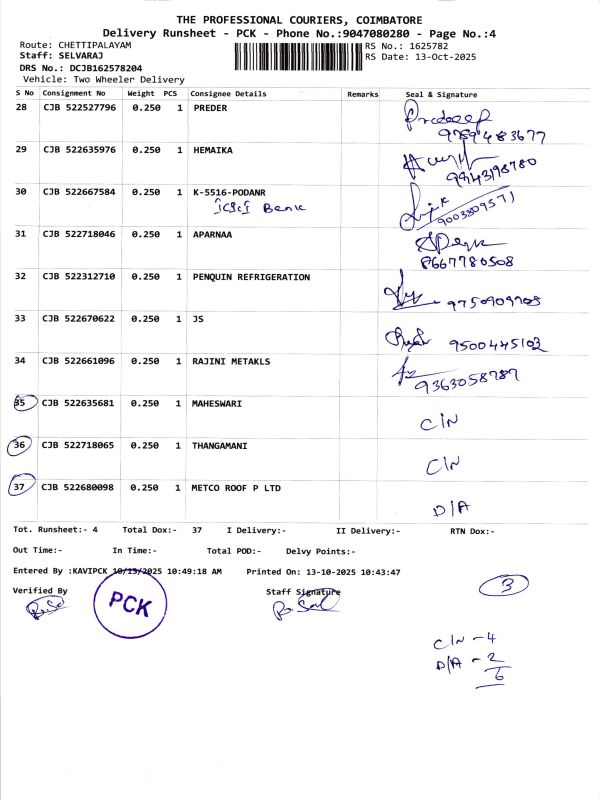 THE PROFESSIONAL COURIERS, COIMBATORE
Delivery Runsheet - PCK - Phone No.:9047080280 - Page No.:4
Route: CHETTIPALAYAM
RS No.: 1625782
Staff: SELVARAJ
RS Date: 13-Oct-2025
DRS No.: DCJB162578204
Vehicle: Two Wheeler Delivery
S No Consignment No Weight PCS Consignee Details Remarks Seal & Signature
28 CJB 522527796 0.250 1 PREDER Pradeep
9789483677
29 CJB 522635976 0.250 1 HEMAIKA
9943198780
30 CJB 522667584 0.250 1 K-5516-PODANR
ICICI Bank
9003809571
31 CJB 522718046 0.250 1 APARNAA
8667780508
32 CJB 522312710 0.250 1 PENQUIN REFRIGERATION
9750909708
33 CJB 522670622 0.250 1 JS
9500445103
34 CJB 522661096 0.250 1 RAJINI METAKLS
9363058787
35 CJB 522635681 0.250 1 MAHESWARI
C/N
36 CJB 522718065 0.250 1 THANGAMANI
C/N
37 CJB 522680098 0.250 1 METCO ROOF P LTD
D/A
Tot. Runsheet:- 4 Total Dox:- 37 I Delivery:- II Delivery:- RTN Dox:-
Out Time:- In Time:- Total POD:- Delvy Points:-
Entered By :KAVIPCK 10/13/2025 10:49:18 AM Printed On: 13-10-2025 10:43:47
Verified By Staff Signature
PCK
3
C/N - 4
D/A - 2
6